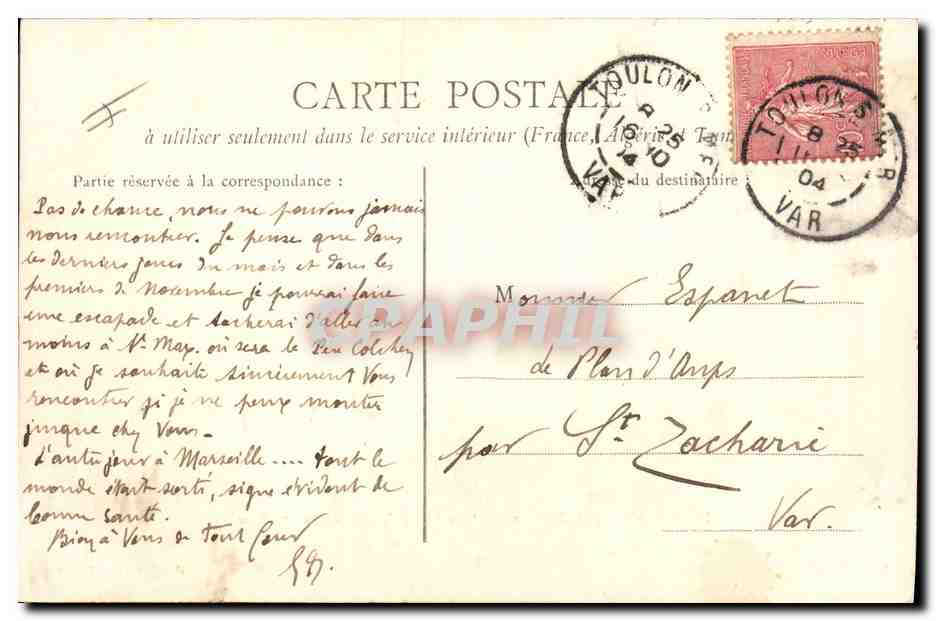 CARTE POSTALE
à utiliser seulement dans le service intérieur (France, Algérie et Tun
Partie réservée à la correspondance :
Adresse du destinataire
TOULON S MER
8 25
16 10
04
VAR
TOULON S MER
8 25
04
VAR
Pas de chance, nous ne pouvons jamais
nous rencontrer. Je pense que dans
les derniers jours du mois et dans les
premiers de Novembre je pourrai faire
une escapade et tacherai d'aller au
moins à St. Max. où sera le Père Colchen
et où je souhaite sincèrement Vous
rencontrer si je ne peux monter
jusque chez Vous.
L'autre jour à Marseille.... tout le
monde était sorti, signe évident de
bonne santé.
Bien à Vous de Tout Coeur
Monsieur Espanet
de Plan d'Aups
par St. Zacharie
Var.
CPAPHIL